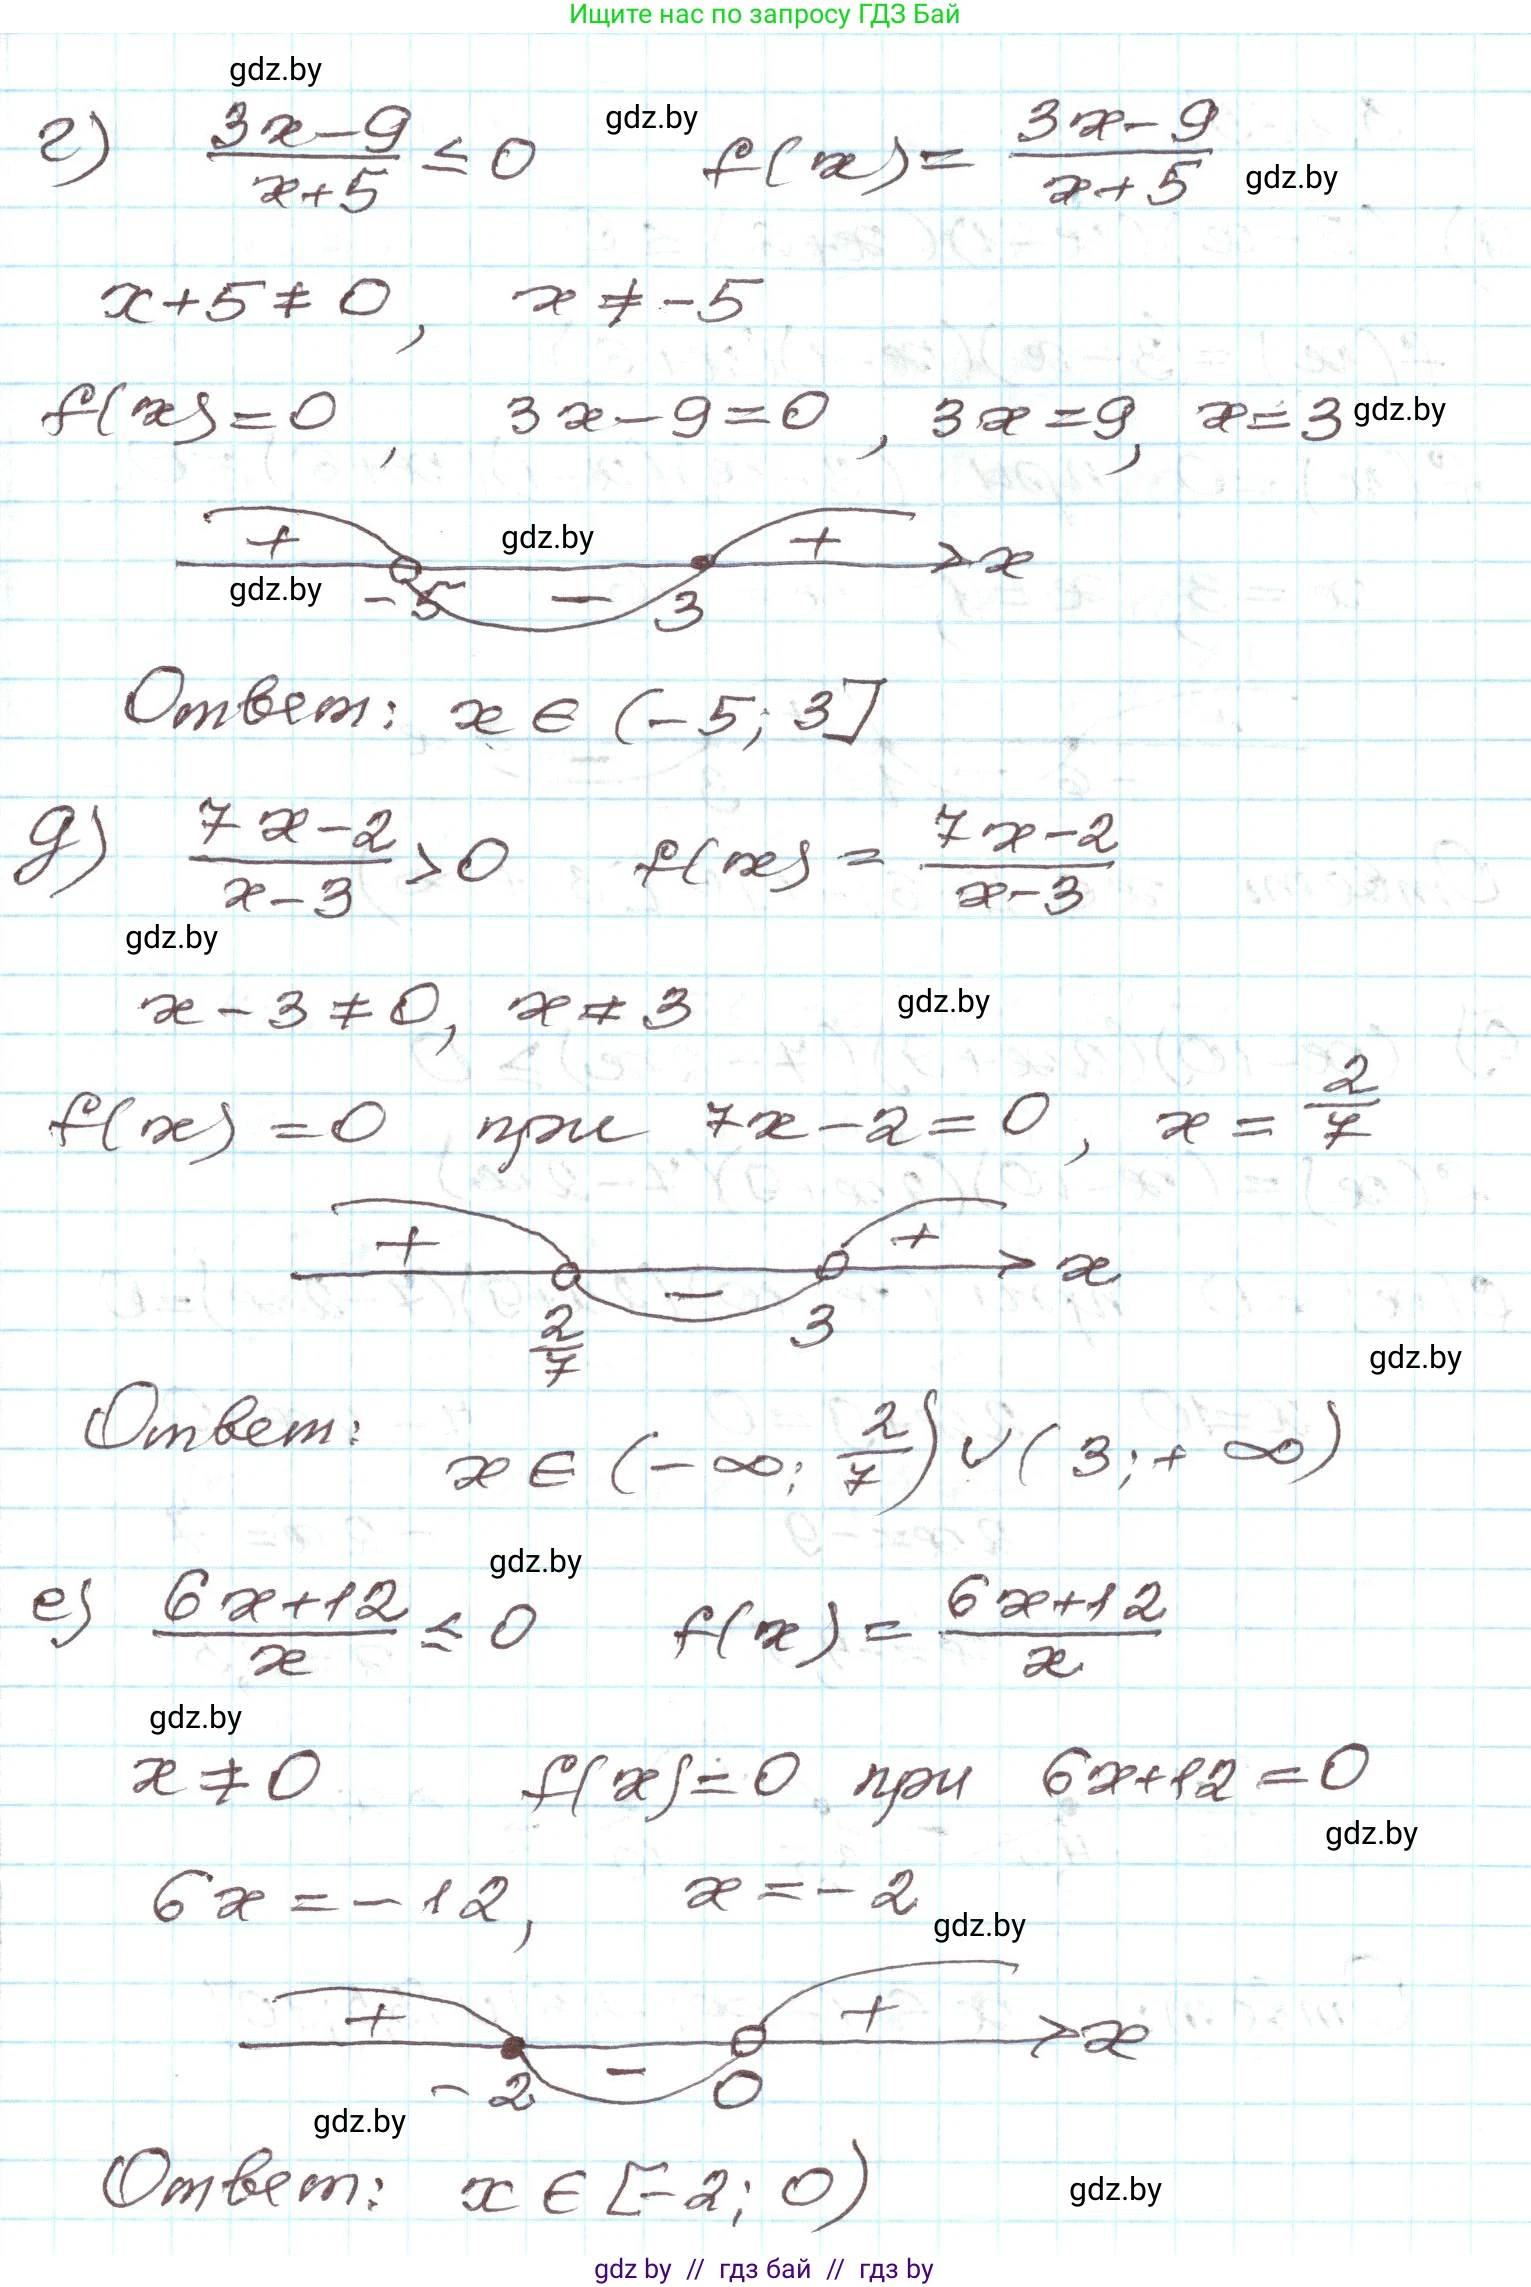 Ищите нас по запросу ГДЗ Бай
gdz.by
г) (3x-9)/(x+5) ≤ 0 gdz.by f(x) = (3x-9)/(x+5) gdz.by
x+5≠0, x≠-5
f(x)=0, 3x-9=0, 3x=9, x=3 gdz.by
+ gdz.by + x
gdz.by -5 - 3
Ответ: x ∈ (-5; 3]
д) (7x-2)/(x-3) > 0 f(x) = (7x-2)/(x-3)
gdz.by
x-3≠0, x≠3 gdz.by
f(x)=0 при 7x-2=0, x=2/7
+ - + x
2/7 3
gdz.by
Ответ: x ∈ (-∞; 2/7) ∪ (3; +∞)
gdz.by
е) (6x+12)/x ≤ 0 f(x) = (6x+12)/x
gdz.by
x≠0 f(x)=0 при 6x+12=0
gdz.by
6x=-12, x=-2
gdz.by
+ + x
-2 - 0
gdz.by
Ответ: x ∈ [-2; 0) gdz.by
gdz by // гдз бай // гдз by